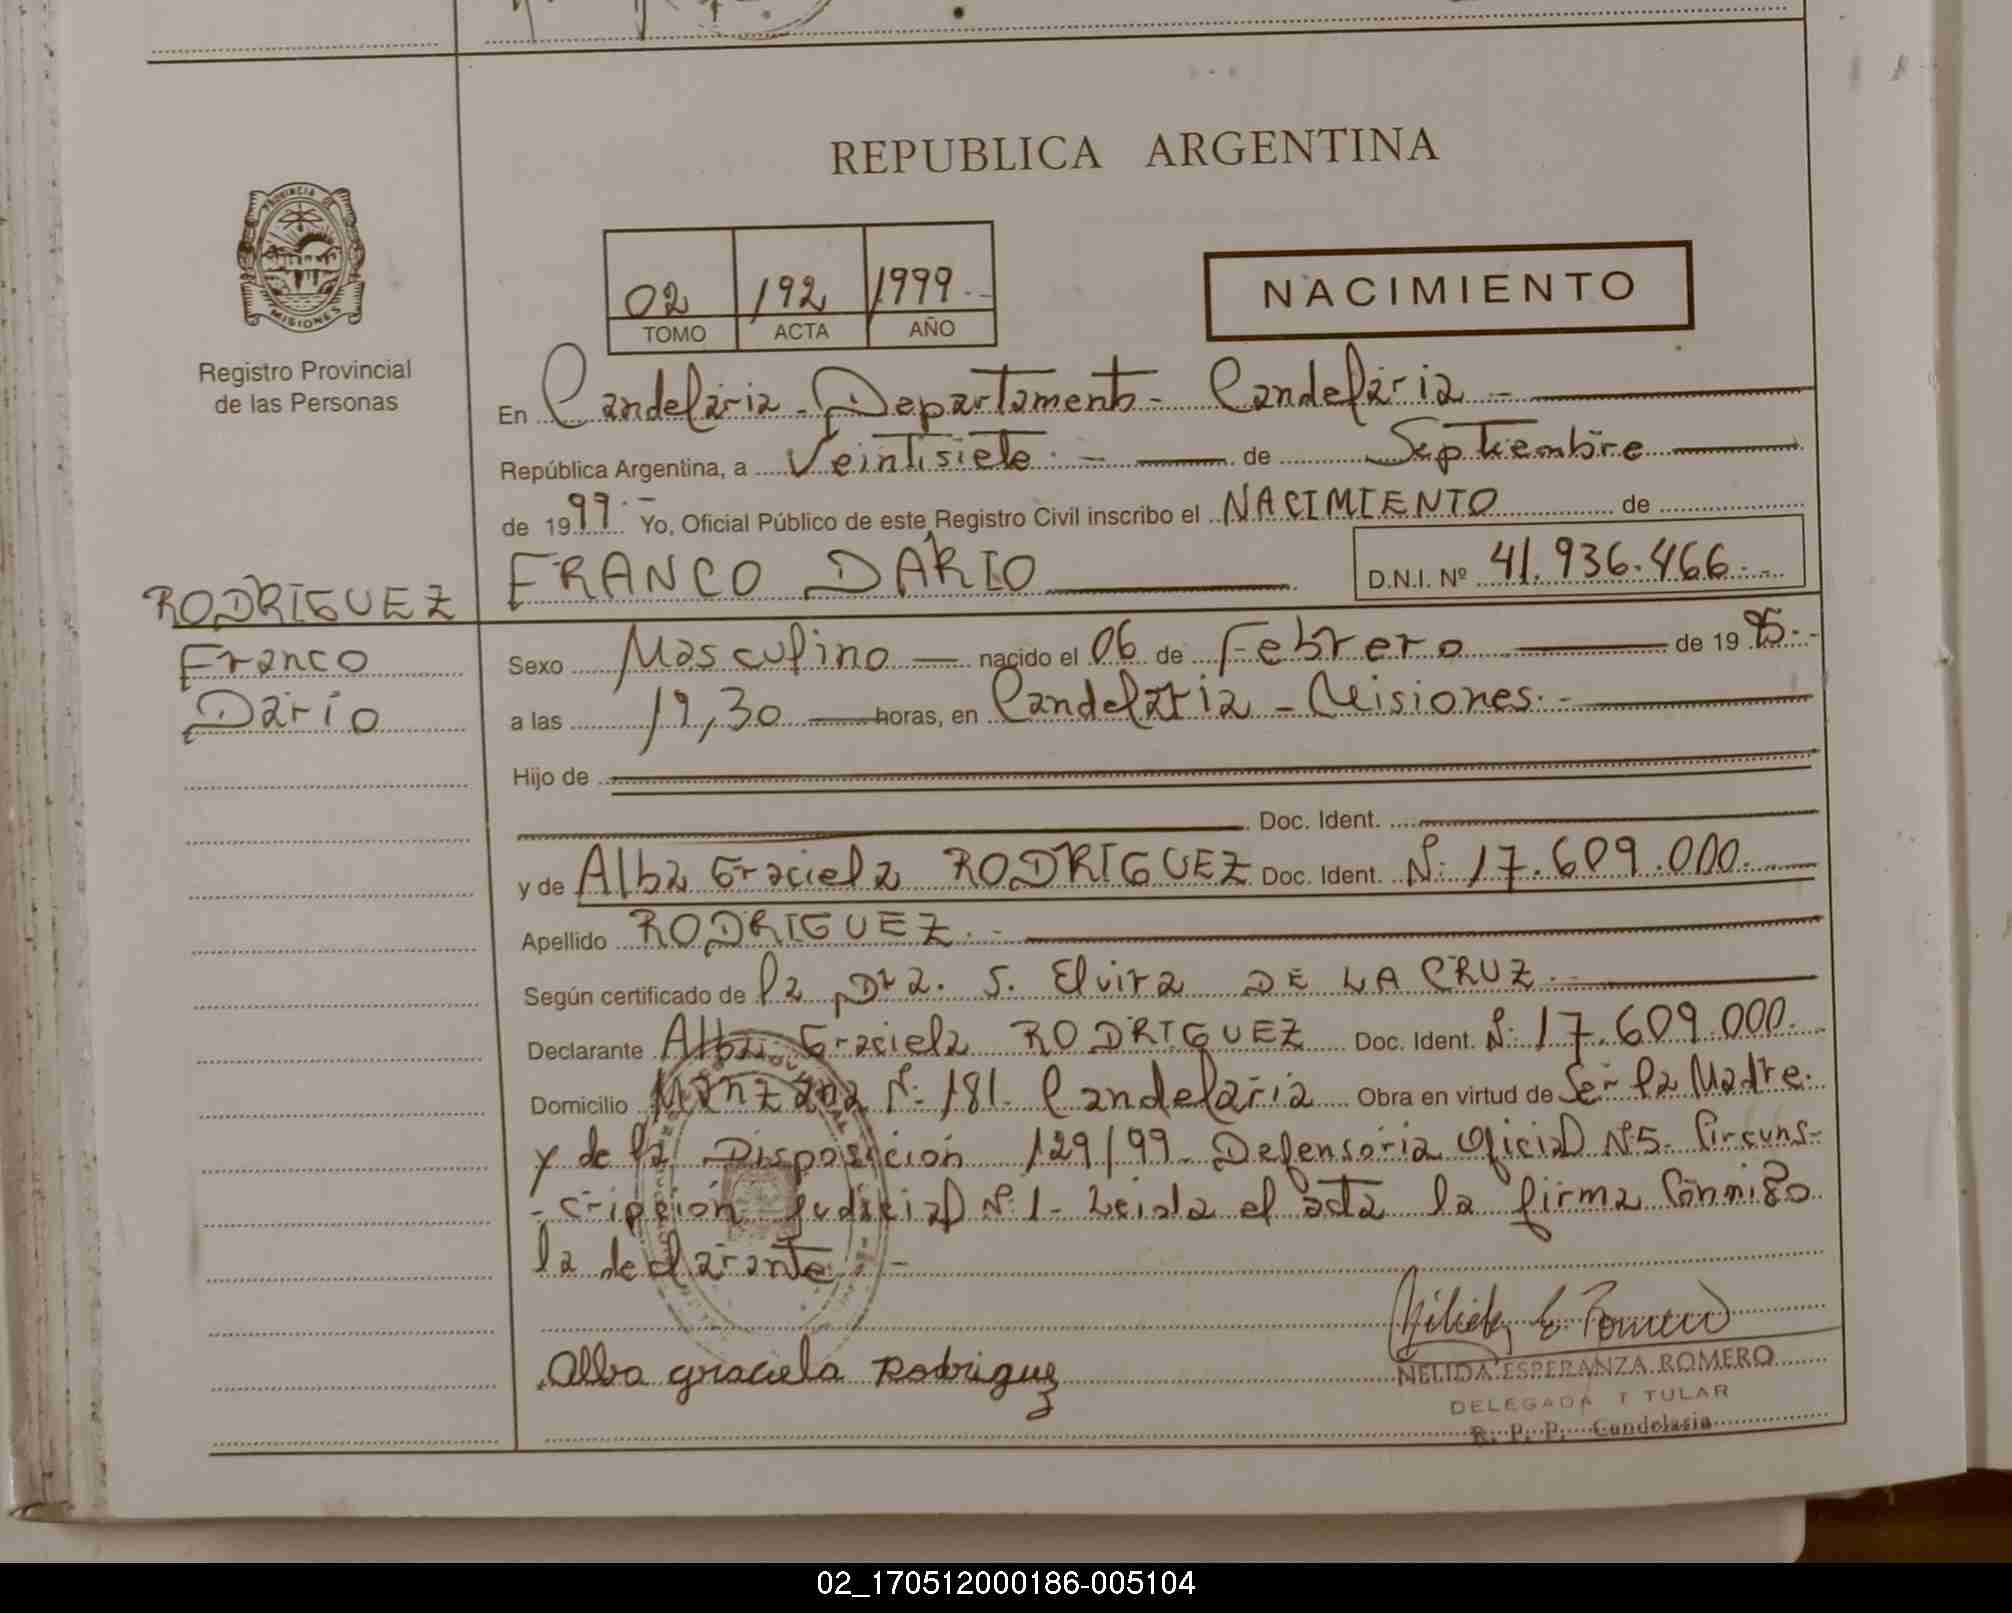 REPUBLICA ARGENTINA
PROVINCIA DE
MISIONES
Registro Provincial
de las Personas
02 192 1999.-
TOMO ACTA AÑO
NACIMIENTO
En Candelaria - Departamento - Candelaria -
República Argentina, a Veintisiete.- de Septiembre
de 1999.- Yo, Oficial Público de este Registro Civil inscribo el NACIMIENTO de
FRANCO DARIO D.N.I. Nº 41.936.466.-
RODRIGUEZ
Franco
Dario
Sexo Masculino - nacido el 06 de Febrero de 1995.-
a las 19,30 horas, en Candelaria - Misiones.-
Hijo de
Doc. Ident.
y de Alba Graciela RODRIGUEZ Doc. Ident. Nº: 17.609.000.
Apellido RODRIGUEZ.-
Según certificado de la Dra. S. Elvira DE LA CRUZ.-
Declarante Alba Graciela RODRIGUEZ Doc. Ident. Nº: 17.609.000.
Domicilio Manzana Nº: 181. Candelaria Obra en virtud de Ser la Madre.
y de la Disposición 129/99. Defensoria Oficial Nº5. Circuns-
-cripción Judicial Nº 1- Leida el acta la firma Conmigo
la declarante.-
Alba graciela Rodriguez
NELIDA ESPERANZA ROMERO
DELEGADA TITULAR
R. P. P. Candelaria
02_170512000186-005104